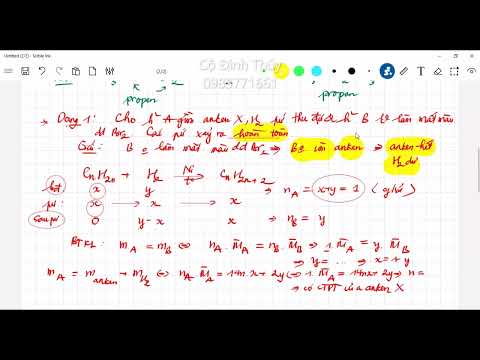 Untitled (2/2) - Noble Ink
Cô Định Thủy
0985771661
propen propen
→ Dạng 1: Cho h² A gồm anken X, H₂ pứ thu được h² B ko làm mất màu
dd Br₂. Các pứ xảy ra hoàn toàn
Giải: B ko làm mất màu dd Br₂ ⇒ B ko còn anken ⇒ anken hết
H₂ dư
CnH2n + H₂ Ni t° → CnH2n+2
bđ: x y ⇒ nA = x+y = 1 (g/sử)
pứ: x → x → x
Sau pứ 0 y-x x ⇒ nB = y
BTKL: mA = mB ⇔ nA.M̄A = nB.M̄B ⇔ 1.M̄A = y.M̄B
⇒ y = ... ⇒ x = 1-y
mA = m anken + mH₂ ⇔ nA.M̄A = 14n.x + 2y ⇔ 1.M̄A = 14nx + 2y ⇒ n =
⇒ có CTPT của anken X